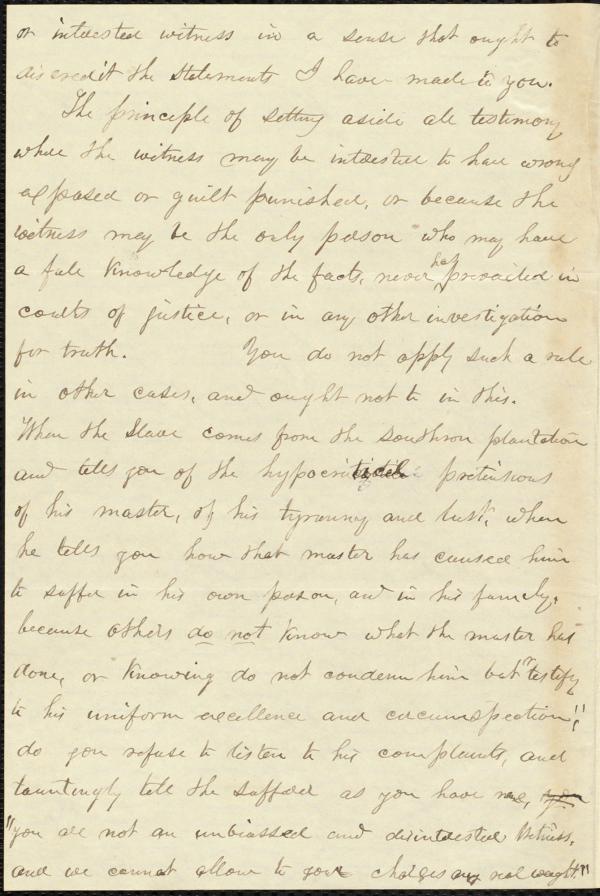 or interested witness in a sense that ought to
discredit the statements I have made to you.
The principle of setting aside all testimony
where the witness may be interested to have wrong
exposed or guilt punished, or because the
witness may be the only person who may have
a full knowledge of the facts, never has prevailed in
courts of justice, or in any other investigation
for truth. You do not apply such a rule
in other cases, and ought not to in this.
When the Slave comes from the Southron plantation
and tells you of the hypocritical pretensions
of his master, of his tyranny and lust, when
he tells you how that master has caused him
to suffer in his own person, and in his family,
because others do not know what the master has
done, or knowing do not condemn him but "testify
to his uniform excellence and circumspection,"
do you refuse to listen to his complaints, and
tauntingly tell the sufferer as you have me, you
"you are not an unbiassed and disinterested Witness,
and we cannot allow to your charges any real weight"